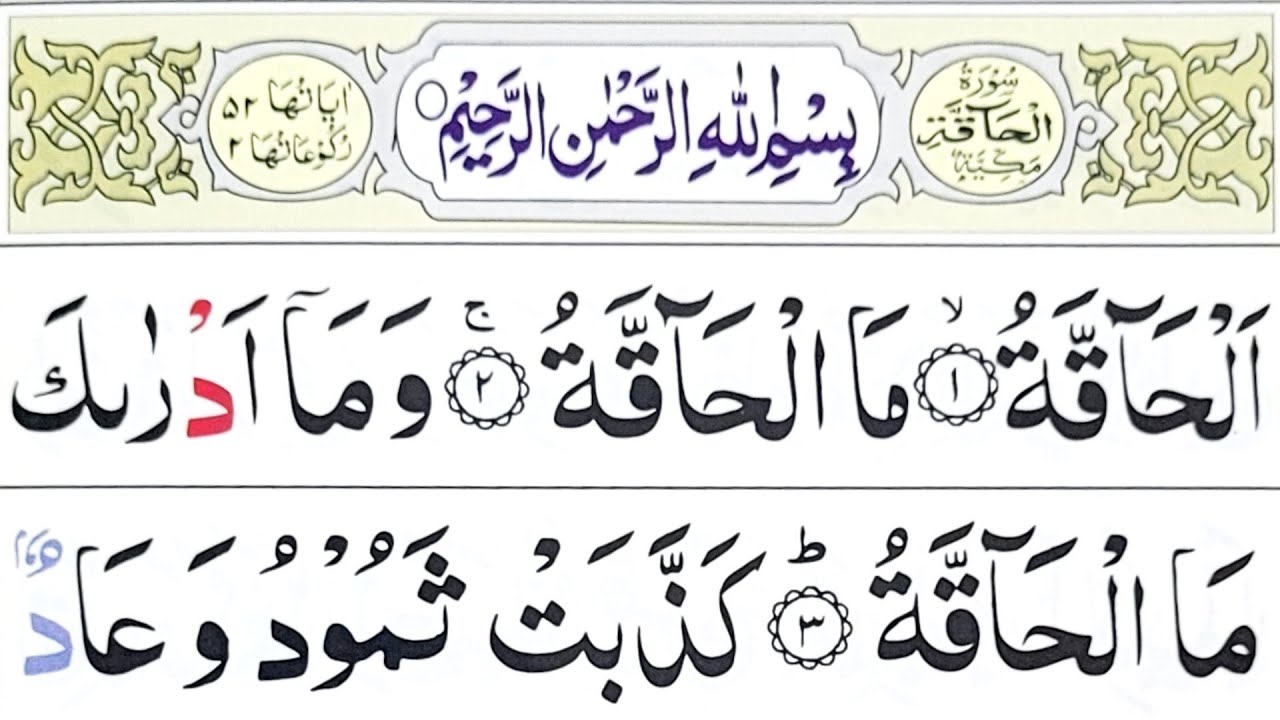 سُوْرَةُ الْحَآقَّةِ مَكِّيَّةٌ
بِسْمِ اللّٰهِ الرَّحْمٰنِ الرَّحِيْمِ
اٰيَاتُهَا ٥٢
رُكُوْعَاتُهَا ٢
اَلْحَآقَّةُ ۙ‏ ١ مَا الْحَآقَّةُ ۚ‏ ٢ وَمَآ اَدْرٰىكَ
مَا الْحَآقَّةُ ؕ‏ ٣ كَذَّبَتْ ثَمُوْدُ وَ عَادٌۢ